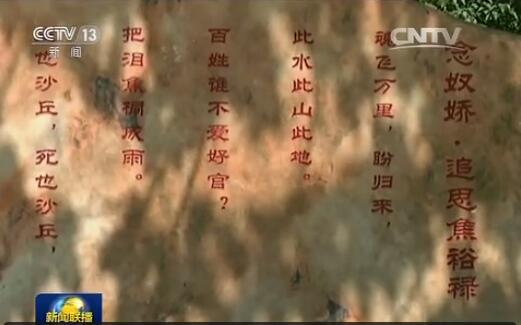 CCTV 13
新闻
CNTV
念奴娇·追思焦裕禄
魂飞万里，盼归来，
此水此山此地。
百姓谁不爱好官？
把泪焦桐成雨。
也沙丘，死也沙丘，
新闻联播